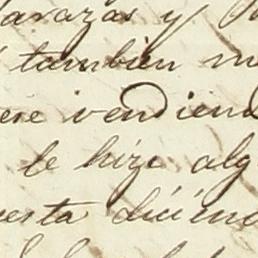 arazas y
también m
ese vendiend
le hize alg
esta diciend